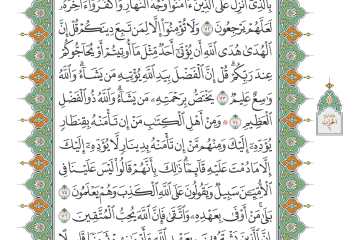 بِٱلَّذِىٓ أُنزِلَ عَلَى ٱلَّذِينَ ءَامَنُوا۟ وَجْهَ ٱلنَّهَارِ وَٱكْفُرُوٓا۟ ءَاخِرَهُۥ
لَعَلَّهُمْ يَرْجِعُونَ ٧٢ وَلَا تُؤْمِنُوٓا۟ إِلَّا لِمَن تَبِعَ دِينَكُمْ قُلْ إِنَّ
ٱلْهُدَىٰ هُدَى ٱللَّهِ أَن يُؤْتَىٰٓ أَحَدٌ مِّثْلَ مَآ أُوتِيتُمْ أَوْ يُحَآجُّوكُمْ
عِندَ رَبِّكُمْ قُلْ إِنَّ ٱلْفَضْلَ بِيَدِ ٱللَّهِ يُؤْتِيهِ مَن يَشَآءُ وَٱللَّهُ
وَٰسِعٌ عَلِيمٌ ٧٣ يَخْتَصُّ بِرَحْمَتِهِۦ مَن يَشَآءُ وَٱللَّهُ ذُو ٱلْفَضْلِ
ٱلْعَظِيمِ ٧٤ وَمِنْ أَهْلِ ٱلْكِتَٰبِ مَنْ إِن تَأْمَنْهُ بِقِنطَارٍ
يُؤَدِّهِۦٓ إِلَيْكَ وَمِنْهُم مَّنْ إِن تَأْمَنْهُ بِدِينَارٍ لَّا يُؤَدِّهِۦٓ إِلَيْكَ
إِلَّا مَا دُمْتَ عَلَيْهِ قَآئِمًا ذَٰلِكَ بِأَنَّهُمْ قَالُوا۟ لَيْسَ عَلَيْنَا فِى
ٱلْأُمِّيِّـۧنَ سَبِيلٌ وَيَقُولُونَ عَلَى ٱللَّهِ ٱلْكَذِبَ وَهُمْ يَعْلَمُونَ ٧٥
بَلَىٰ مَنْ أَوْفَىٰ بِعَهْدِهِۦ وَٱتَّقَىٰ فَإِنَّ ٱللَّهَ يُحِبُّ ٱلْمُتَّقِينَ ٧٦
إِنَّ ٱلَّذِينَ يَشْتَرُونَ بِعَهْدِ ٱللَّهِ وَأَيْمَٰنِهِمْ ثَمَنًا قَلِيلًا